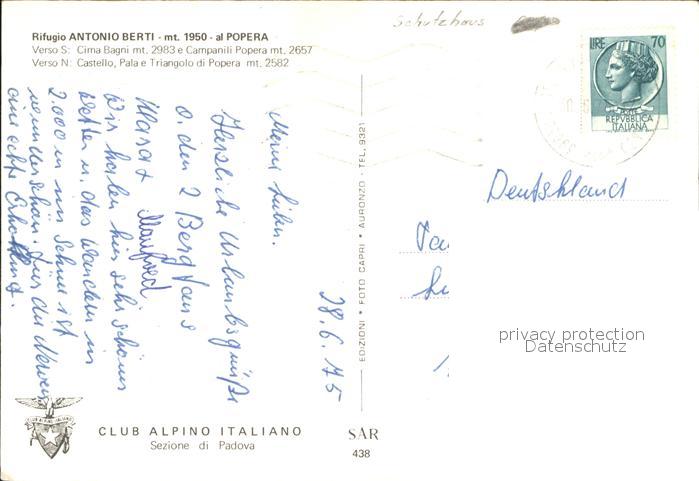 Schutzhaus
Rifugio ANTONIO BERTI - mt. 1950 - al POPERA
Verso S: Cima Bagni mt. 2983 e Campanili Popera mt. 2657
Verso N: Castello, Pala e Triangolo di Popera mt. 2582
LIRE 70
POSTE
REPVBBLICA
ITALIANA
28.6.75
Meine Lieben.
Herzliche Urlaubsgrüße
v. den 2 Bergfans
Manfred
Wir haben hier sehr schönes
Wetter u. das Wandern in
2.000 m im Schnee ist
wunderschön. Für die Nerven
eine echte Erholung.
EDIZIONI • FOTO CAPRI • AURONZO • TEL. 9321
Deutschland
privacy protection
Datenschutz
CLUB ALPINO ITALIANO
CLUB ALPINO ITALIANO
Sezione di Padova
SAR
438